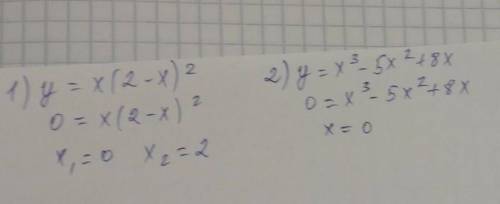 1) y = x(2-x)²
0 = x(2-x)²
x₁=0 x₂=2
2) y = x³-5x²+8x
0 = x³-5x²+8x
x=0